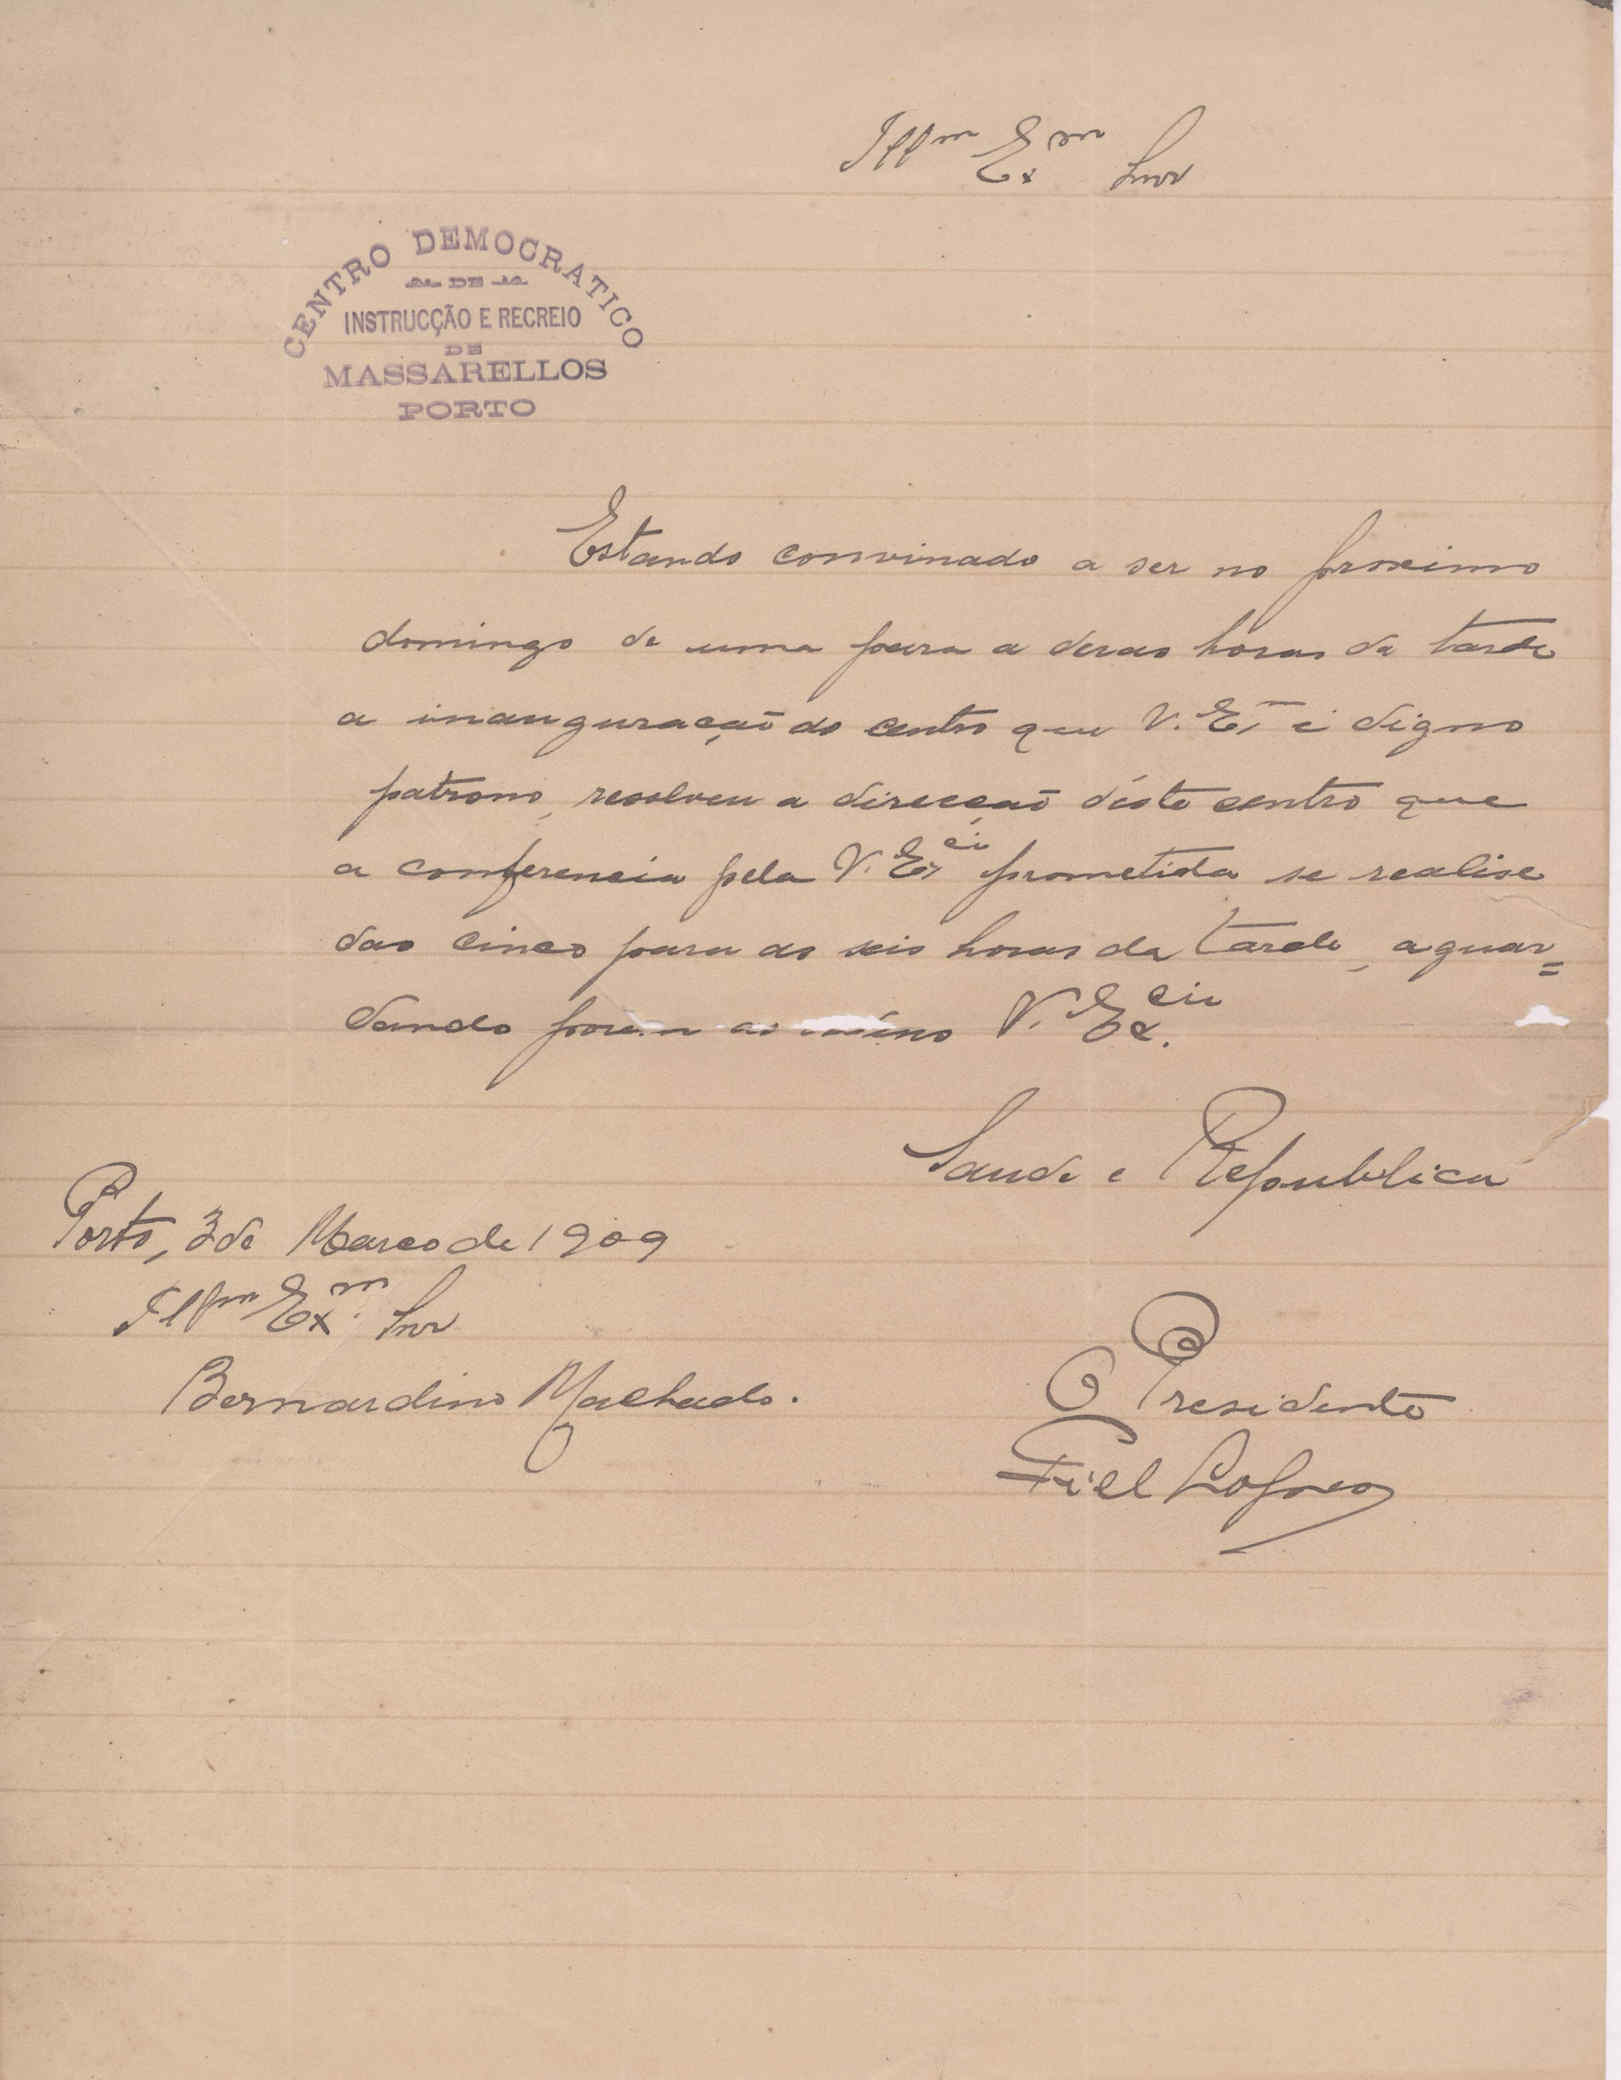 Illm Exm Snr
CENTRO DEMOCRATICO
DE
INSTRUCÇÃO E RECREIO
DE
MASSARELLOS
PORTO
Estando convinado a ser no proximo
domingo da uma para a duas horas da tarde
a inauguração do centro que V. Ex é digno
patrono, resolveu a direcção déste centro que
a conferencia pela V. Excia prometida se realise
das cinco para as seis horas da tarde, aguar=
dando V. Excia.
Saude e Republica
Porto, 3 de Março de 1909
Illm Exm Snr
Bernardino Machado.
O Presidente
Fiel Lopes